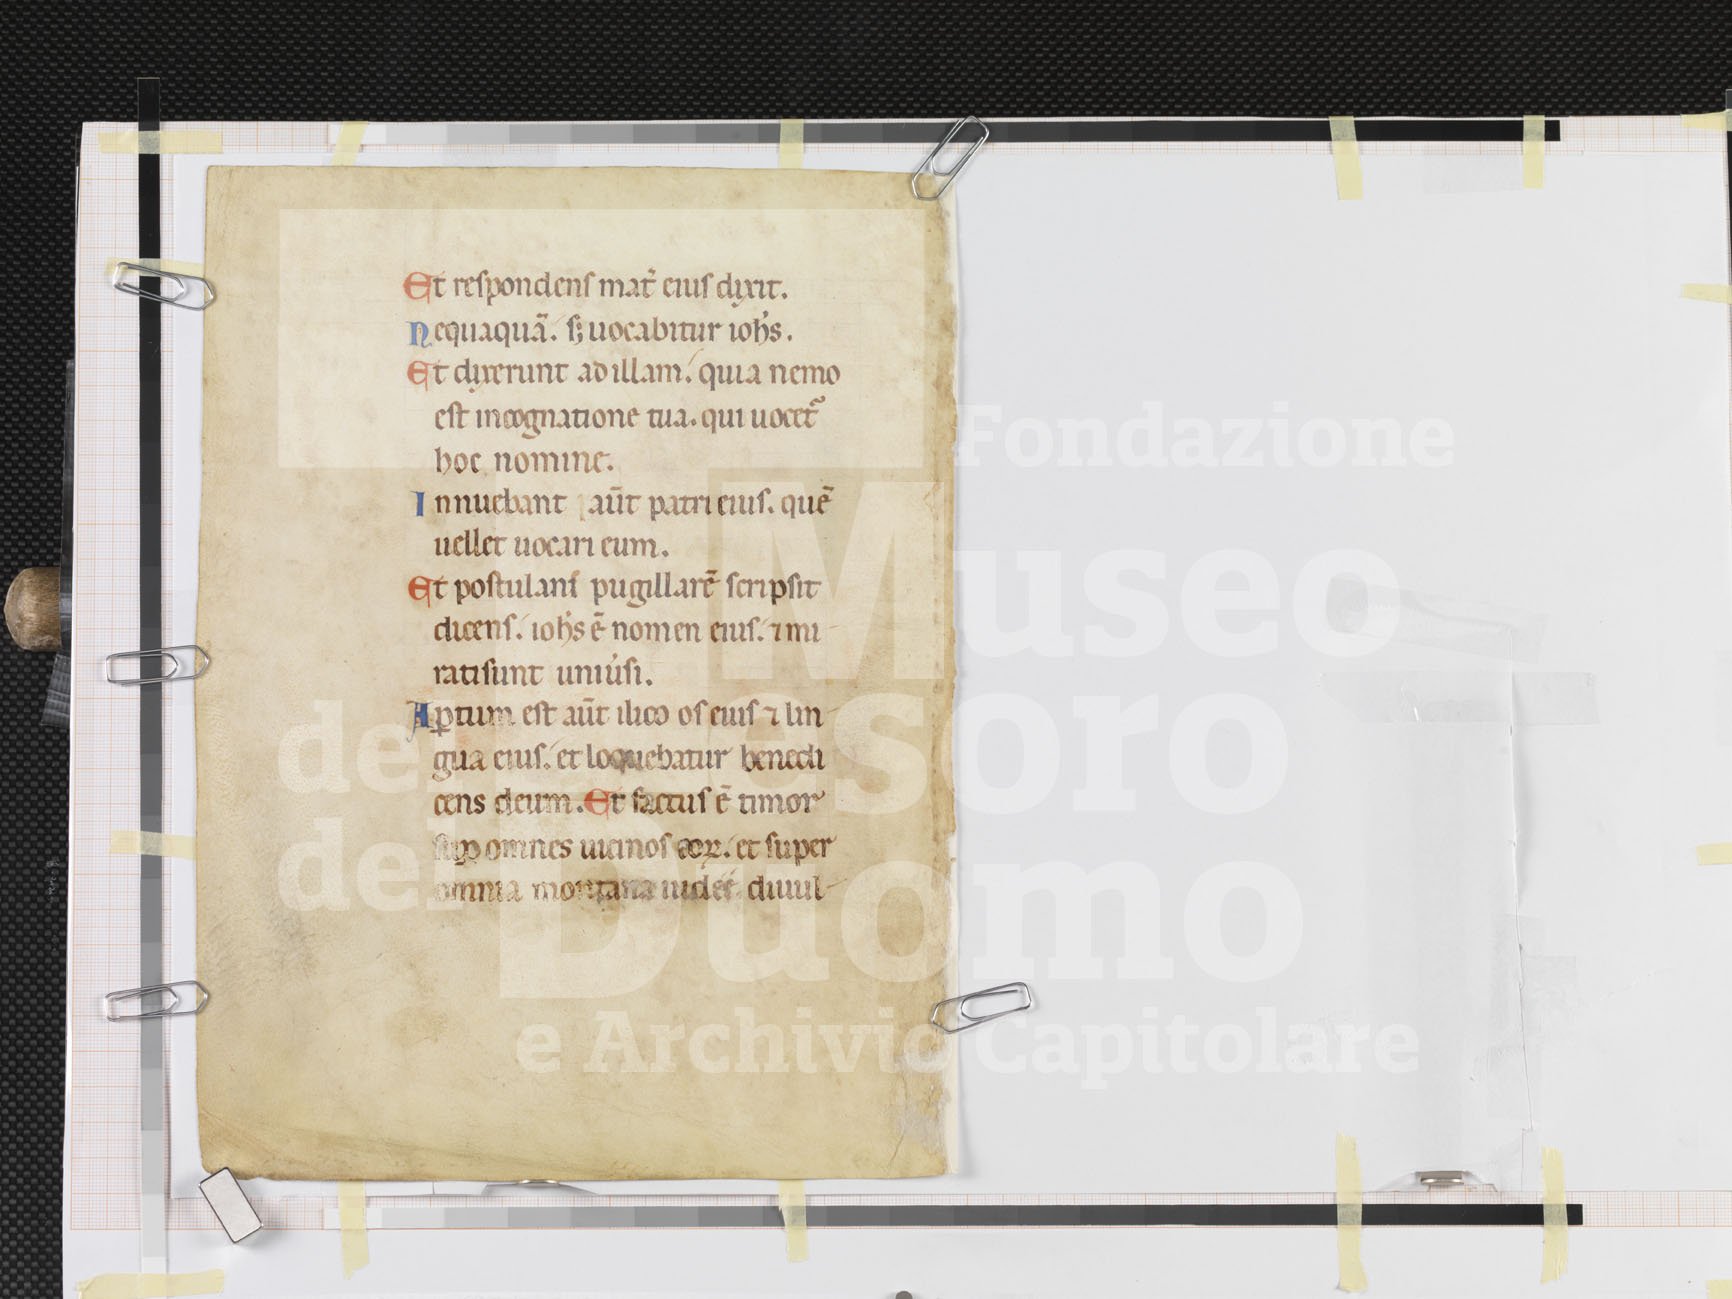 Et respondens mat̉ eius dixit.
Nequaquā. sꝫ uocabitur ioħs.
Et dixerunt ad illam. quia nemo
est incognatione tua. qui uocet᷑
hoc nomine.
Innuebant aūt patri eius. quē
uellet uocari eum.
Et postulans pugillarē scripsit
dicens. ioħs ē nomen eius. ⁊ mi
rati sunt uniu̓si.
Aꝑtum est aūt ilico os eius ⁊ lin
gua eius. et loquebatur benedi
cens deum. Et factus ē timor
omnes uicinos eoꝝ. et super
omnia montana iudeę diuul
Fondazione
Museo
del Tesoro
del Duomo
e Archivio Capitolare